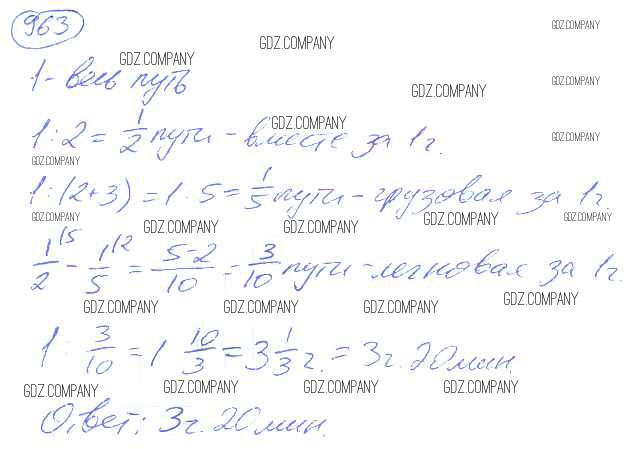 963
GDZ.COMPANY
GDZ.COMPANY
GDZ.COMPANY
1 - весь путь
GDZ.COMPANY
GDZ.COMPANY
GDZ.COMPANY
1 : 2 = 1/2 пути - вместе за 1 ч.
GDZ.COMPANY
GDZ.COMPANY
1 : (2+3) = 1 · 5 = 1/5 пути - грузовая за 1 ч.
GDZ.COMPANY
GDZ.COMPANY
GDZ.COMPANY
GDZ.COMPANY
GDZ.COMPANY
1/2 \5 - 1/5 \2 = 5-2/10 = 3/10 пути - легковая за 1 ч.
GDZ.COMPANY
GDZ.COMPANY
GDZ.COMPANY
GDZ.COMPANY
1 : 3/10 = 1 · 10/3 = 3 1/3 ч. = 3 ч. 20 мин.
GDZ.COMPANY
GDZ.COMPANY
GDZ.COMPANY
GDZ.COMPANY
Ответ: 3 ч. 20 мин.